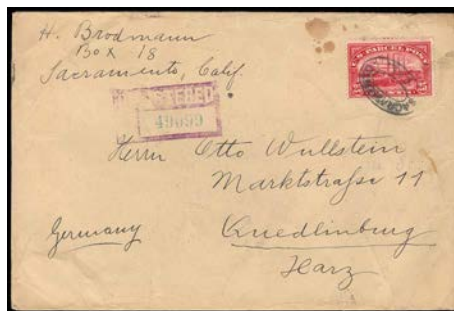 H. Brodmann
Box 18
Sacramento, Calif.
U.S. PARCEL POST
REGISTERED
49699
Herrn Otto Wullstein
Marktstraße 11
Germany
Quedlinburg
Harz